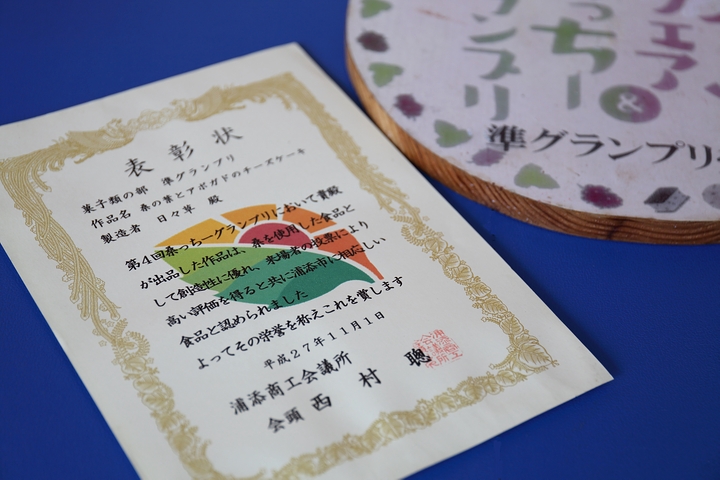 表彰状
菓子類の部 準グランプリ
作品名 桑の葉とアボガドのチーズケーキ
製造者 日々草 殿
第4回桑っちーグランプリにおいて貴殿
が出品した作品は、桑を使用した食品と
して創造性に優れ、来場者の投票により
高い評価を得ると共に浦添市に相応しい
食品と認められました
よってその栄誉を称えこれを賞します
平成27年11月1日
浦添商工会議所
会頭 西村 聰
フェア&
っちー
ンプリ
準グランプリ